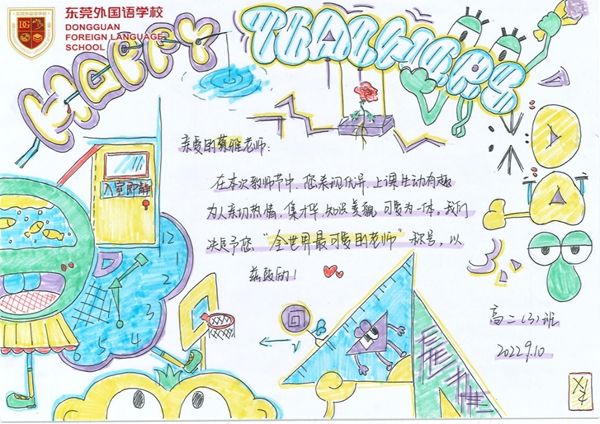 东莞外国语学校
DONGGUAN
FOREIGN LANGUAGE
SCHOOL
HAPPY
TEACHERS
DAY
亲爱的蔡雅老师:
在本次教师节中,您表现优异,上课生动有趣
为人亲切热情,集才华、知识、美貌、可爱为一体,我们
决定予您“全世界最可爱的老师”称号,以
兹鼓励!
入室即静
12
1
2
3
4
5
6
回
高二(3)班
2022.9.10